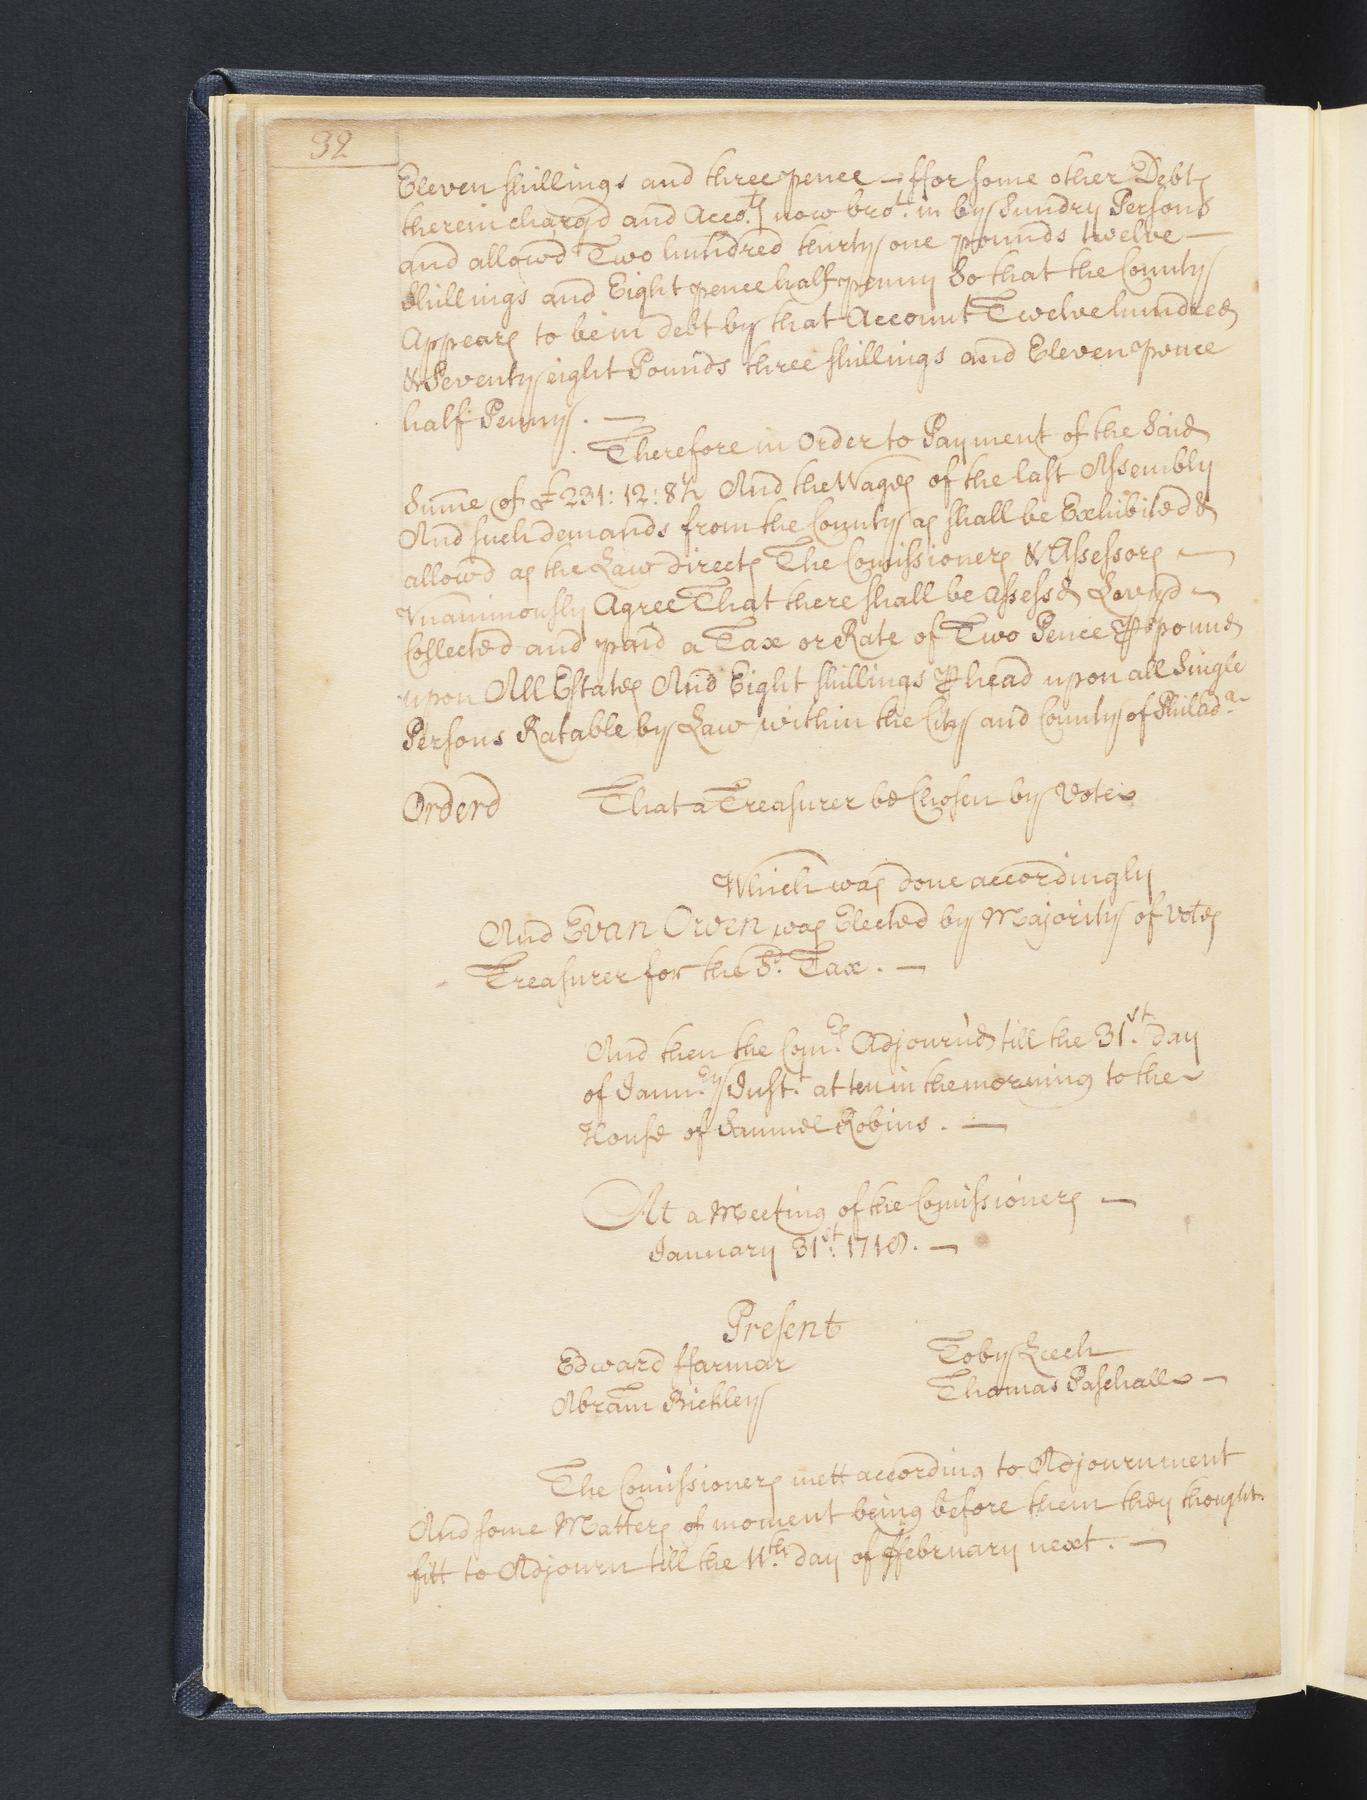 32
Eleven shillings and three pence — ffor some other Debts
therein charg'd and Acco.ts now bro.t in by Sundry Persons
and allowd Two hundred thirty one pounds twelve —
shillings and Eight pence half penny So that the County
Appears to be in debt by that Account Twelve hundred
& Seventy eight Pounds three shillings and Eleven pence
half Penny. —
Therefore in Order to Payment of the Said
Sume of £231:12:8½ And the Wages of the last Assembly
And such demands from the County as shall be Exhibited &
allowd as the Law directs The Comissioners & Assessors —
Vnanimously Agree That there shall be assess'd Levy'd
Collected and paid a Tax or Rate of Two Pence ⅌ pound
upon All Estates And Eight shillings ⅌ head upon all Single
Persons Ratable by Law within the City and County of Philad.a
Orderd That a Treasurer be Chosen by Vote
Which was done accordingly
And Evan Owen was Elected by Majority of votes
Treasurer for the S.d Tax. —
And then the Com.rs Adjourn'd till the 31.st day
of Janu.ry Inst.t at ten in the morning to the
House of Samuel Robins. —
At a Meeting of the Comissioners —
January 31.st 1718. —
Present
Edward ffarmar Toby Leech
Abram Bickley Thomas Paschall —
The Comissioners mett according to Adjournment
And some Matters of moment being before them they thought
fitt to Adjourn till the 11.th day of ffebruary next. —